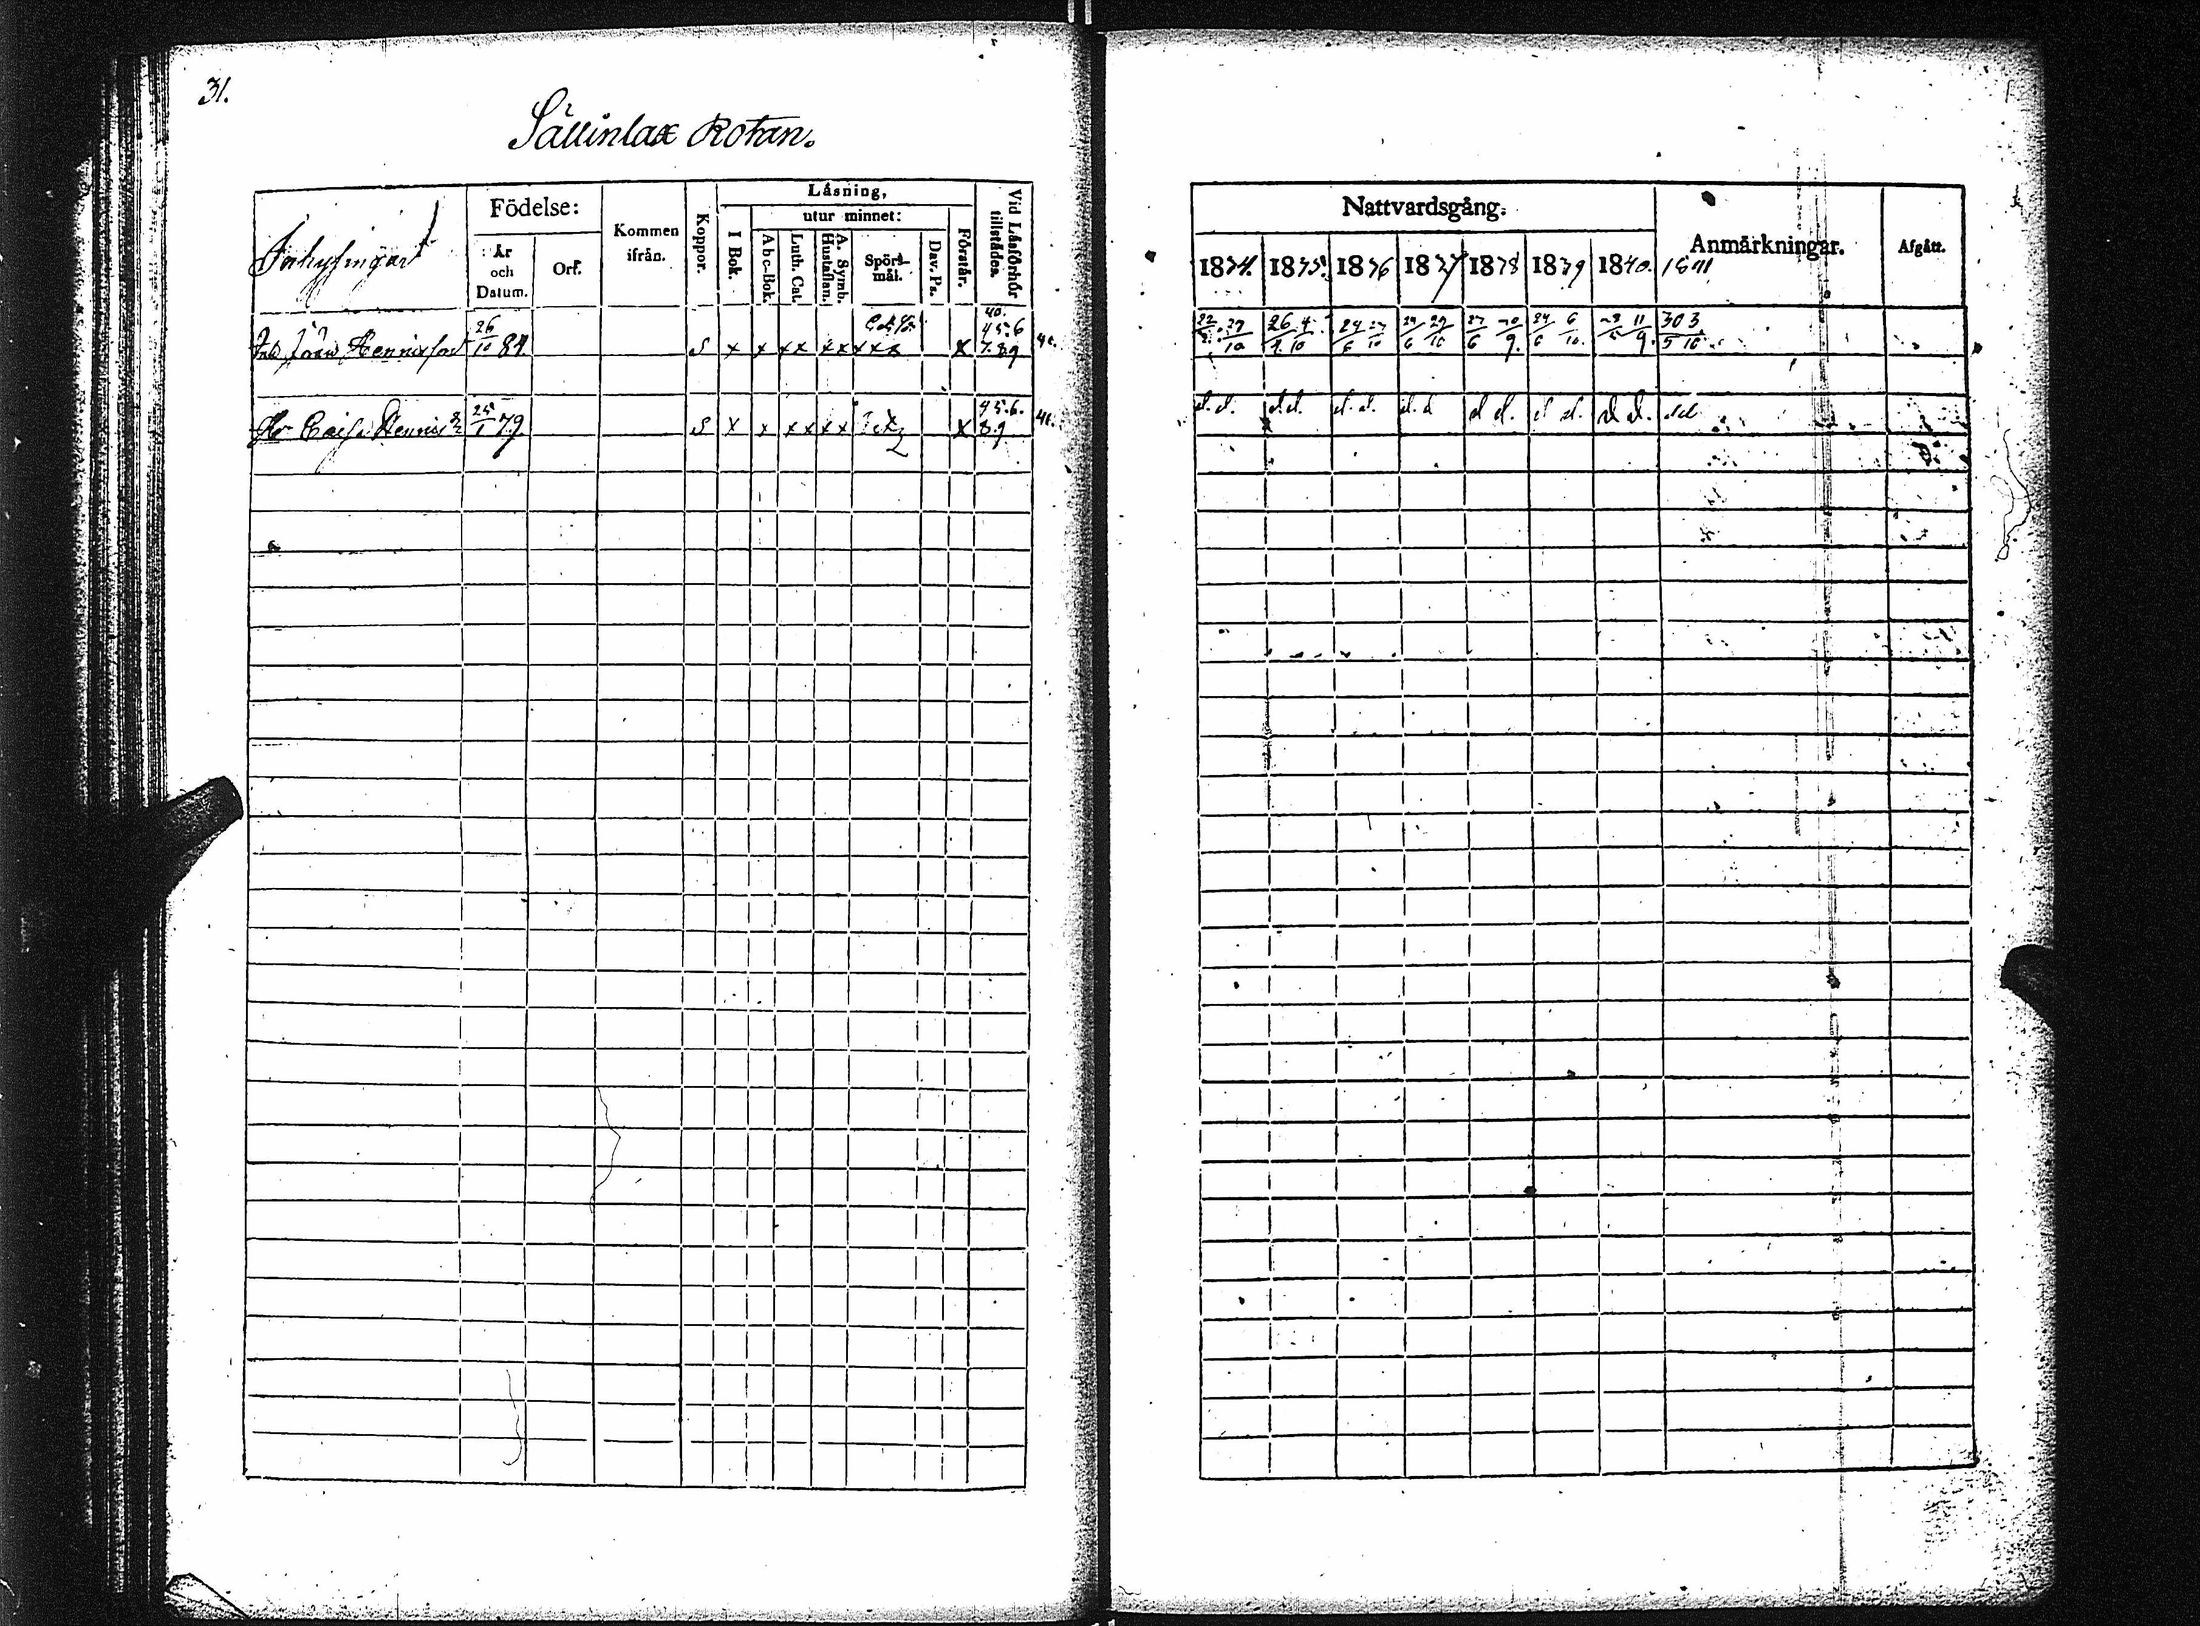 31.
Sällinlax Rotan.
Inhysingar
Födelse:
År och Datum.
Ort.
Kommen ifrån.
Koppor.
Läsning,
I Bok.
utur minnet:
Abc-Bok.
Luth. Cat.
A. Symb. Hustaflan.
Spörsmål.
Dav. Ps.
Förstår.
Vid Läsförhör tillstädes.
40.
Johan Hennixson 26/10 84. S x x xx xx xxx x 4 5. 6 7. 8. 9 41.
Hu Caisa Hennix 25/1 79. S x x xx xx x 4 5. 6. 8. 9 41.
Nattvardsgång:
Anmärkningar.
Afgått.
1834. 1835. 1836 1837 1838 1839 1840. 1841
22/6 29/10 26/4 4/10 24/6 27/10 29/6 29/10 27/6 9. 24/6 6/10. 11/9. 30/5 3/10
d. d. d d. d. d. d. d d d. d d. d d. d d